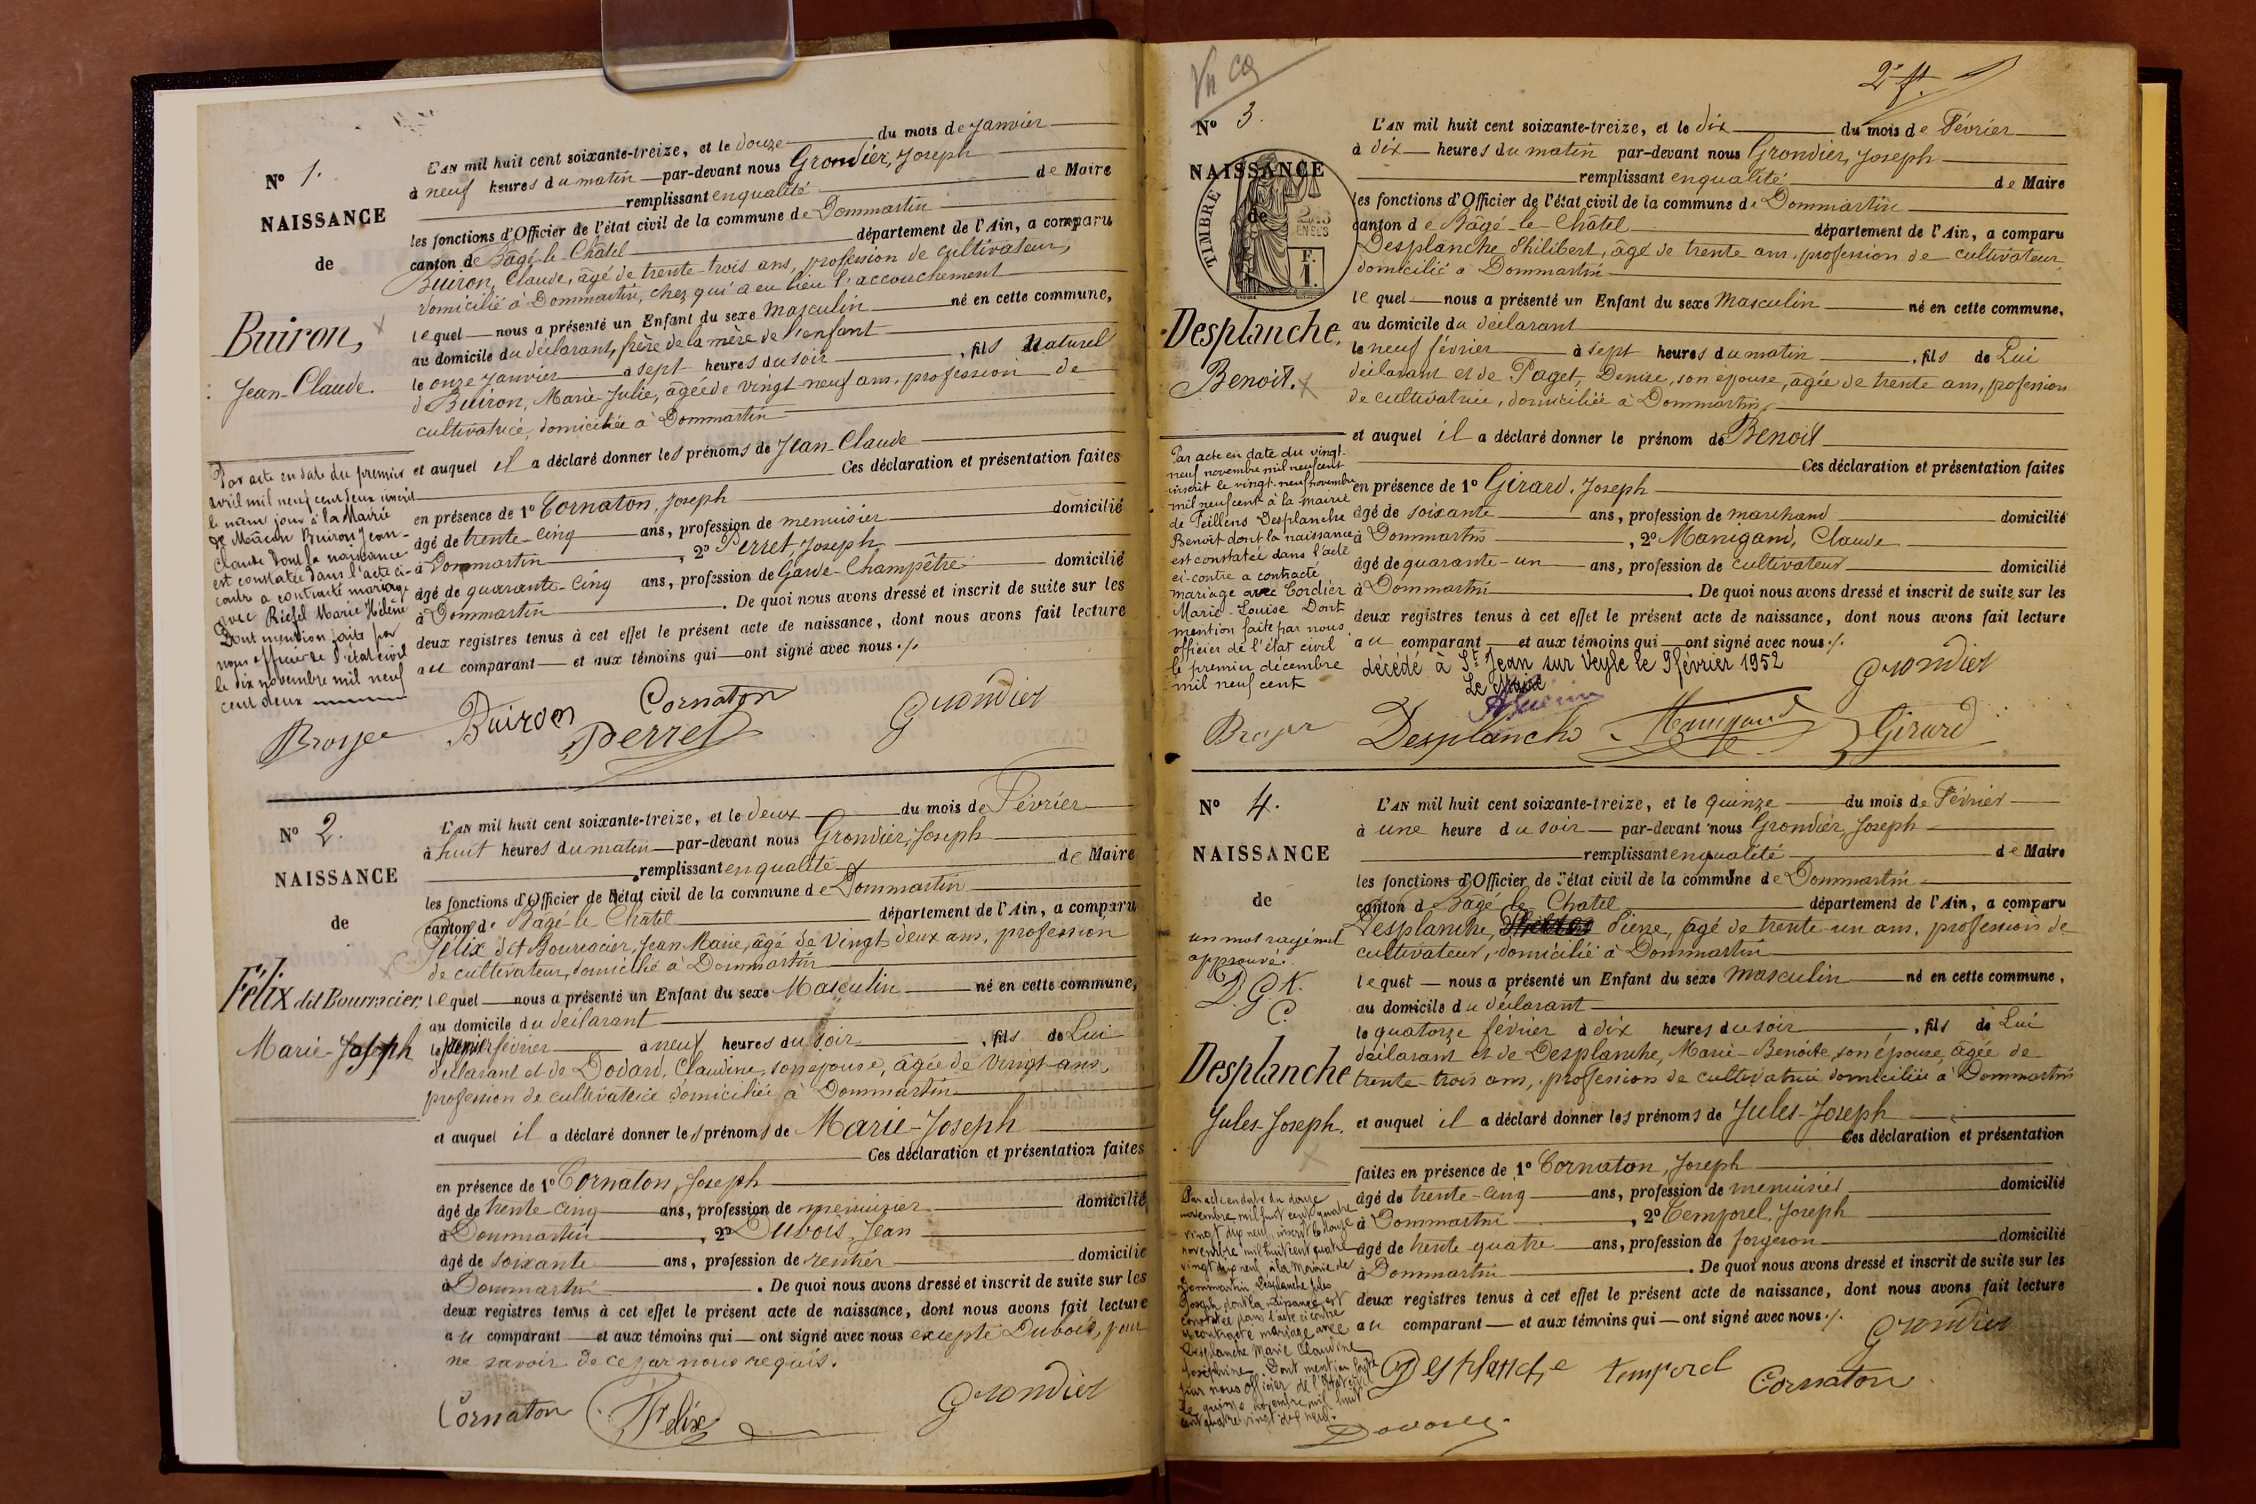 N° 1.
NAISSANCE
de
Buiron,
Jean-Claude.
L'AN mil huit cent soixante-treize, et le douze du mois de Janvier
à neuf heures du matin par-devant nous Grondier, Joseph
remplissant en qualité de Maire
les fonctions d'Officier de l'état civil de la commune de Dommartin
canton de Bâgé-le-Châtel département de l'Ain, a comparu
Buiron, Claude, âgé de trente-trois ans, profession de cultivateur,
domicilié à Dommartin, chez qui a eu lieu l'accouchement
lequel nous a présenté un Enfant du sexe Masculin né en cette commune,
au domicile du déclarant, frère de la mère de l'enfant
le onze Janvier à sept heures du soir, fils naturel
de Buiron, Marie-Julie, âgée de vingt-neuf ans, profession de
cultivatrice, domiciliée à Dommartin
et auquel il a déclaré donner les prénoms de Jean-Claude
Ces déclaration et présentation faites
en présence de 1° Cornaton, Joseph
âgé de trente-cinq ans, profession de menuisier domicilié
à Dommartin, 2° Perret, Joseph
âgé de quarante-cinq ans, profession de Garde-Champêtre domicilié
à Dommartin. De quoi nous avons dressé et inscrit de suite sur les
deux registres tenus à cet effet le présent acte de naissance, dont nous avons fait lecture
au comparant et aux témoins qui ont signé avec nous ./.
Par acte en date du premier
avril mil neuf cent deux inscrit
le même jour à la Mairie
de Mâcon Buiron Jean-
Claude dont la naissance
est constatée dans l'acte ci-
contre a contracté mariage
avec Marie Hélène
Dont mention faite par
nous officier de l'état civil
le dix novembre mil neuf
cent deux
Broyer Buiron Cornaton Perret Grondier
N° 2.
NAISSANCE
de
Félix dit Bourracier,
Marie-Joseph
L'AN mil huit cent soixante-treize, et le deux du mois de Février
à huit heures du matin par-devant nous Grondier, Joseph
remplissant en qualité de Maire
les fonctions d'Officier de l'état civil de la commune de Dommartin
canton de Bâgé-le-Châtel département de l'Ain, a comparu
Félix dit Bourracier, Jean-Marie, âgé de vingt-deux ans, profession
de cultivateur, domicilié à Dommartin
lequel nous a présenté un Enfant du sexe Masculin né en cette commune,
au domicile du déclarant
le premier février à neuf heures du soir, fils de Lui
déclarant et de Dodard, Claudine, son épouse, âgée de vingt ans,
profession de cultivatrice domiciliée à Dommartin
et auquel il a déclaré donner les prénoms de Marie-Joseph
Ces déclaration et présentation faites
en présence de 1° Cornaton, Joseph
âgé de trente-cinq ans, profession de menuisier domicilié
à Dommartin, 2° Dubois, Jean
âgé de soixante ans, profession de rentier domicilié
à Dommartin. De quoi nous avons dressé et inscrit de suite sur les
deux registres tenus à cet effet le présent acte de naissance, dont nous avons fait lecture
au comparant et aux témoins qui ont signé avec nous excepté Dubois, pour
ne savoir de ce par nous requis.
Cornaton Felix Grondier
2e ft.
N° 3.
NAISSANCE
de
TIMBRE
F.
1.
Desplanche,
Benoit.
L'AN mil huit cent soixante-treize, et le dix du mois de Février
à dix heures du matin par-devant nous Grondier, Joseph
remplissant en qualité de Maire
les fonctions d'Officier de l'état civil de la commune de Dommartin
canton de Bâgé-le-Châtel département de l'Ain, a comparu
Desplanche Philibert, âgé de trente ans, profession de cultivateur
domicilié à Dommartin
lequel nous a présenté un Enfant du sexe Masculin né en cette commune,
au domicile du déclarant
le neuf février à sept heures du matin, fils de Lui
déclarant et de Paget, Denise, son épouse, âgée de trente ans, profession
de cultivatrice, domiciliée à Dommartin,
et auquel il a déclaré donner le prénom de Benoit
Ces déclaration et présentation faites
en présence de 1° Girard, Joseph
âgé de soixante ans, profession de marchand domicilié
à Dommartin, 2° Manigand, Claude
âgé de quarante-un ans, profession de cultivateur domicilié
à Dommartin. De quoi nous avons dressé et inscrit de suite sur les
deux registres tenus à cet effet le présent acte de naissance, dont nous avons fait lecture
au comparant et aux témoins qui ont signé avec nous ./.
décédé à St Jean sur Veyle le 9 février 1952
Le Maire
Par acte en date du vingt-
neuf novembre mil neuf cent
inscrit le vingt-neuf novembre
mil neuf cent à la mairie
de Feillens Desplanche
Benoit dont la naissance
est constatée dans l'acte
ci-contre a contracté
mariage avec Cordier
Marie-Louise Dont
mention faite par nous
officier de l'état civil
le premier décembre
mil neuf cent
Broyer Desplanche Manigand Girard Grondier
N° 4.
NAISSANCE
de
un mot rayé nul
approuvé.
D. G. K.
C.
Desplanche
Jules-Joseph.
L'AN mil huit cent soixante-treize, et le quinze du mois de Février
à une heure du soir par-devant nous Grondier, Joseph
remplissant en qualité de Maire
les fonctions d'Officier de l'état civil de la commune de Dommartin
canton de Bagé-le-Chatel département de l'Ain, a comparu
Desplanche, Pierre, âgé de trente-un ans, profession de
cultivateur, domicilié à Dommartin
lequel nous a présenté un Enfant du sexe Masculin né en cette commune,
au domicile du déclarant
le quatorze février à dix heures du soir, fils de Lui
déclarant et de Desplanche, Marie-Benoite, son épouse, âgée de
trente-trois ans, profession de cultivatrice domiciliée à Dommartin
et auquel il a déclaré donner les prénoms de Jules-Joseph
Ces déclaration et présentation
faites en présence de 1° Cornaton, Joseph
âgé de trente-cinq ans, profession de menuisier domicilié
à Dommartin, 2° Temporel, Joseph
âgé de trente-quatre ans, profession de forgeron domicilié
à Dommartin. De quoi nous avons dressé et inscrit de suite sur les
deux registres tenus à cet effet le présent acte de naissance, dont nous avons fait lecture
au comparant et aux témoins qui ont signé avec nous ./.
Par acte en date du douze
novembre mil huit cent quatre
vingt dix neuf, inscrit le douze
novembre mil huit cent quatre
vingt dix neuf à la Mairie de
Dommartin Desplanche Jules
Joseph dont la naissance est
constatée dans l'acte ci contre
a contracté mariage avec
Desplanche Marie Claudine
Joséphine Dont mention faite
par nous officier de l'état civil
le quinze novembre mil huit
cent quatre vingt dix neuf.
Desplanche temporel Cornaton Grondier